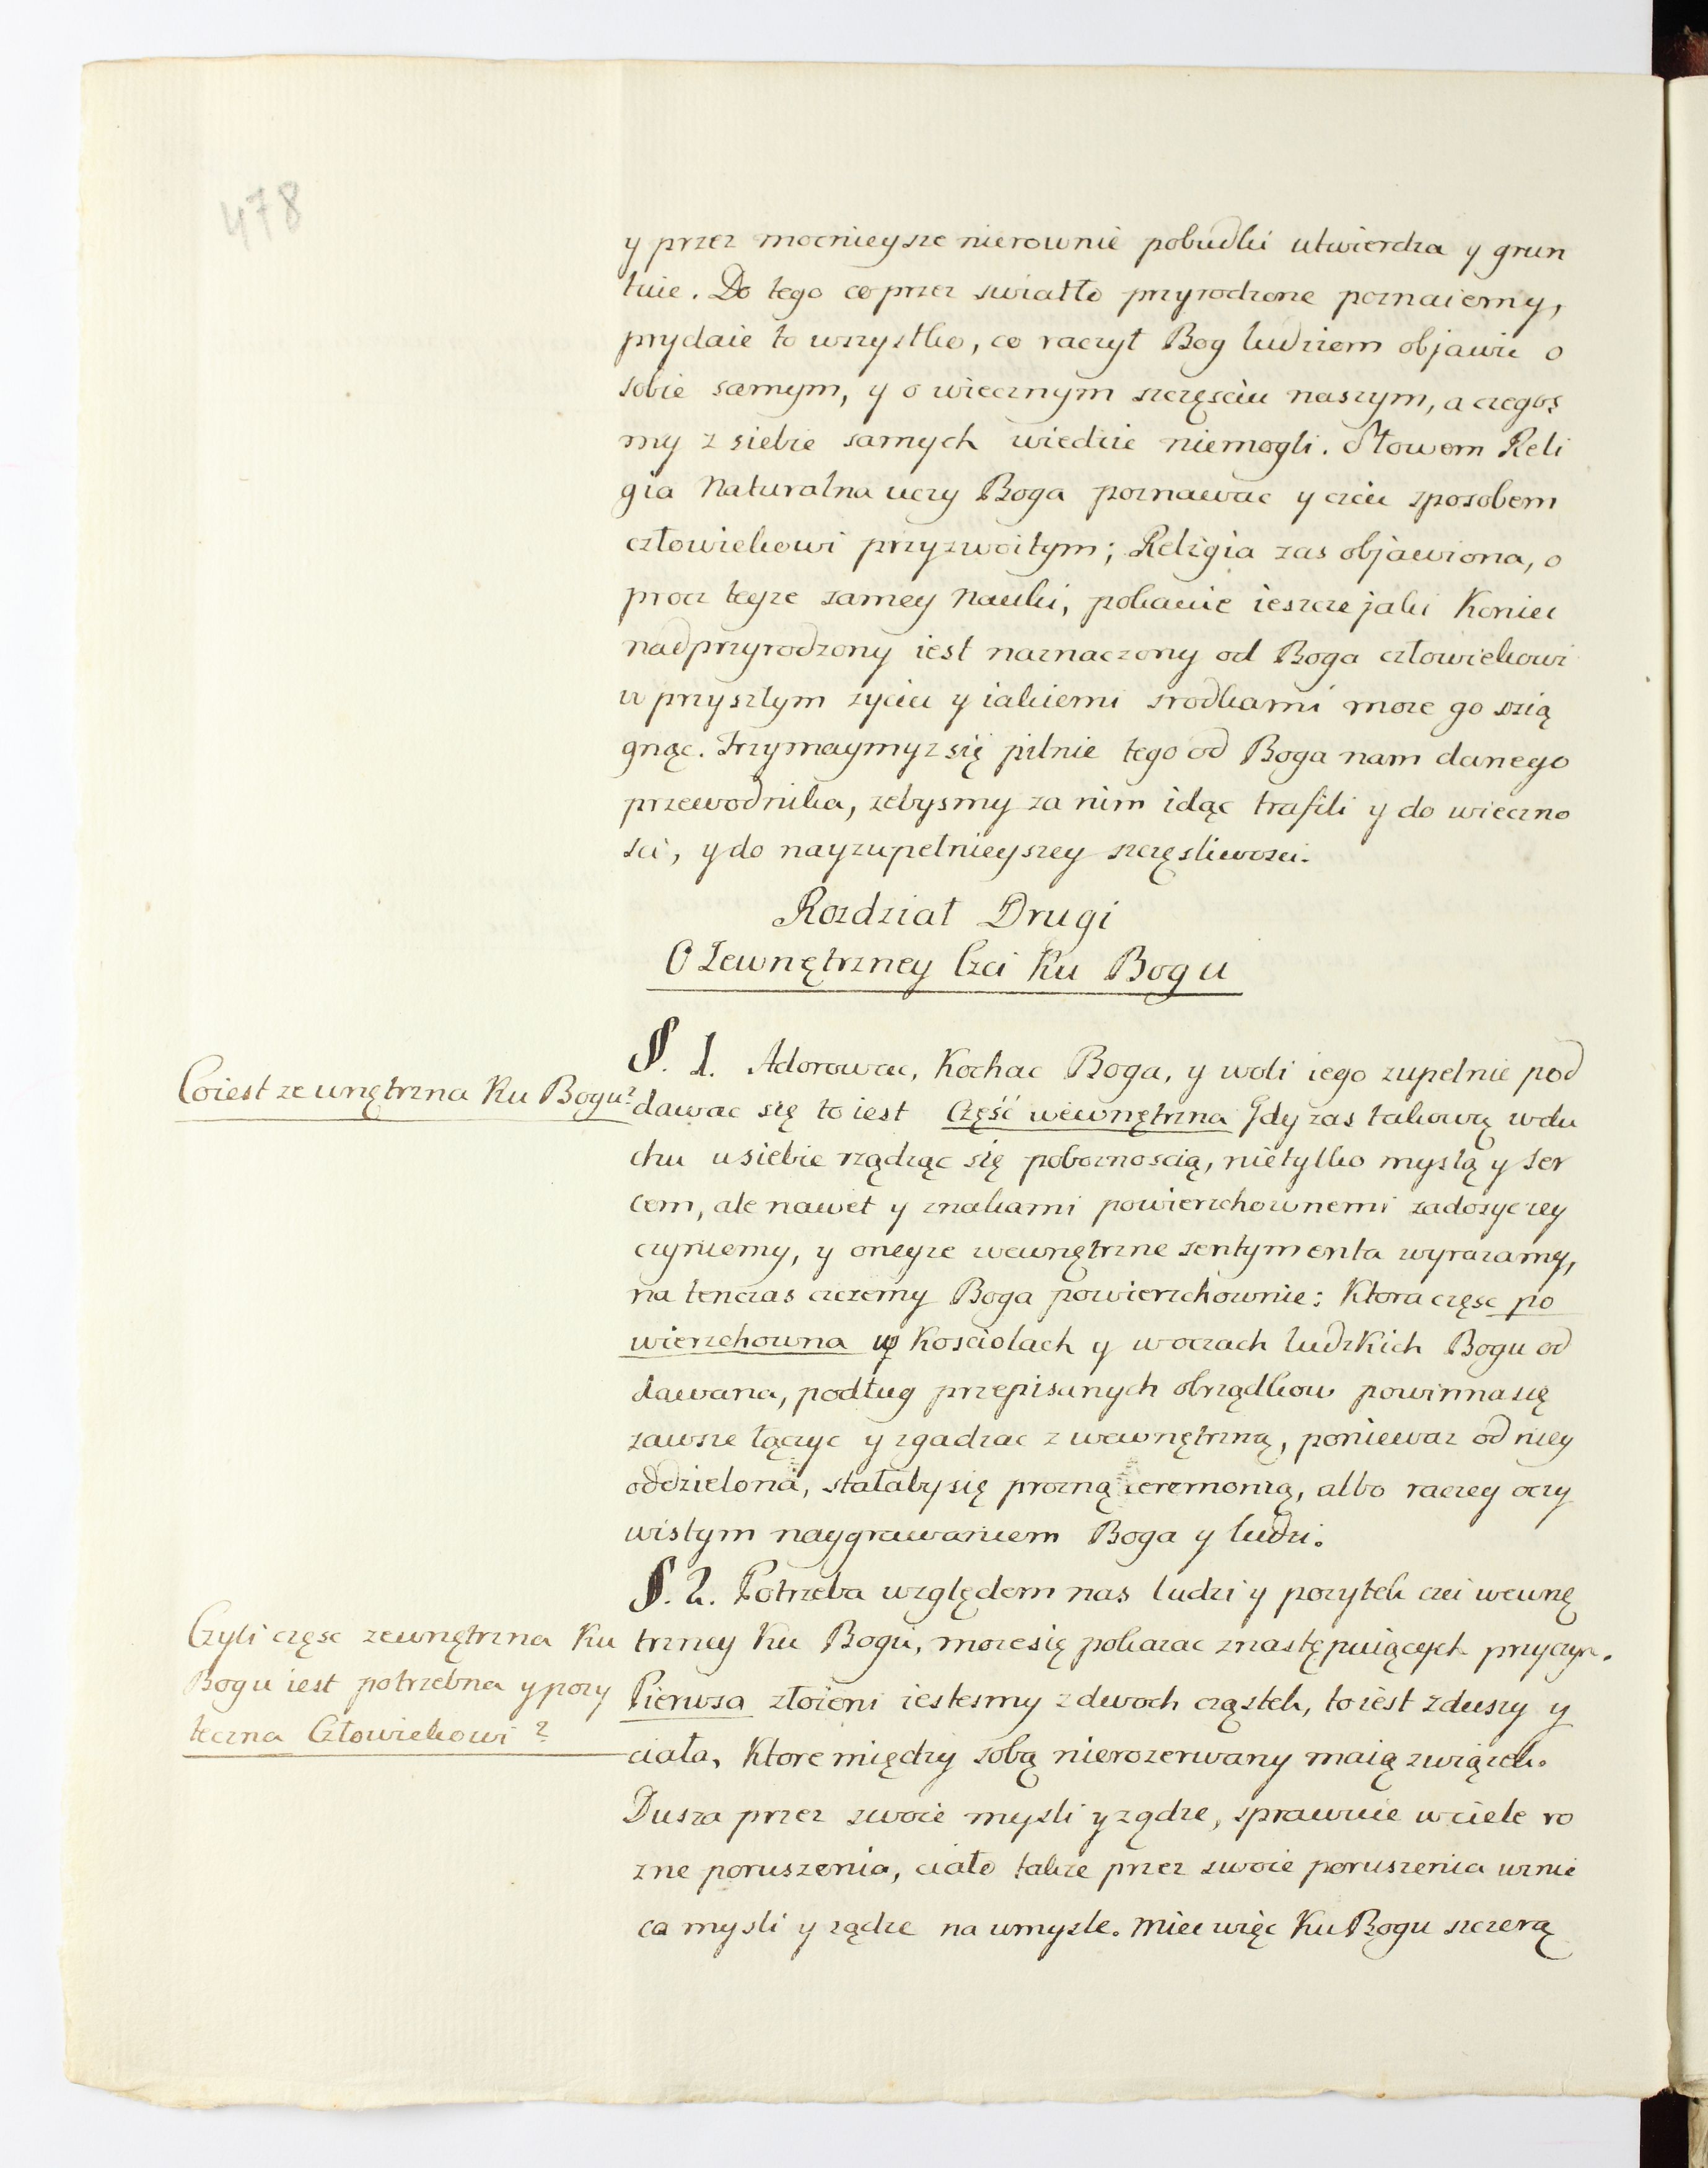 478
y przez mocnieysze nierownie pobudki utwierdza y grun
tuie. Do tego co przez swiatło przyrodzone poznaiemy,
prydaie to wszystko, co raczył Bog ludziom objawic o
sobie samym, y o wiecznym szczęsciu naszym, a czegos
my z siebie samych wiedzie niemogli. Słowem Reli
gia Naturalna uczy Boga poznawac y czcic sposobem
człowiekowi przyzwoitym; Religia zas objawiona, o
procz teyze samey Nauki, pokazuie ieszcze jaki Koniec
nadprzyrodzony iest naznaczony od Boga człowiekowi
w przyszłym zyciu y iakiemi srodkami moze go osią
gnąc. Trzymaymyz się pilnie tego od Boga nam danego
przewodnika, zebysmy za nim idąc trafili y do wieczno
sci, y do nayzupełnieyszey szczęsliwosci.
Rozdział Drugi
O Zewnętrzney Czci Ku Bogu
§. 1. Adorowac, Kochac Boga, y woli iego zupełnie pod
Co iest zewnętrzna Ku Bogu?
dawac się to iest Część wewnętrzna Gdy zas takową w du
chu u siebie rządząc się poboznoscią, nietylko myslą y ser
cem, ale nawet y znakami powierzchownemi zadosyc iey
czyniemy, y oneyze wewnętrzne sentymenta wyrazamy,
na tenczas czczemy Boga powierzchownie: Ktora częsc po
wierzchowna w Kosciołach y w oczach ludzkich Bogu od
dawana, podług przepisanych obrządkow powinna się
zawsze łączyc y zgadzac z wewnętrzną, poniewaz od niey
oddzielona, stałaby się prozną ceremonią, albo raczey oczy
wistym naygrawaniem Boga y ludzi.
§. 2. Potrzeba względem nas ludzi y pozytek czci wewnę
Czyli częsc zewnętrzna Ku
Bogu iest potrzebna y pozy
teczna Człowiekowi?
trzney Ku Bogu, moze się pokazac z następuiących przyczyn.
Pierwsa złozeni iestesmy z dwoch cząstek, to iest z duszy y
ciała, Ktore między sobą nierozerwany maią związek.
Dusza przez swoie mysli y ządze, sprawuie w ciele ro
zne poruszenia, ciało takze przez swoie poruszenia wznie
ca mysli y ządze na umysle. Miec więc Ku Bogu szczerą